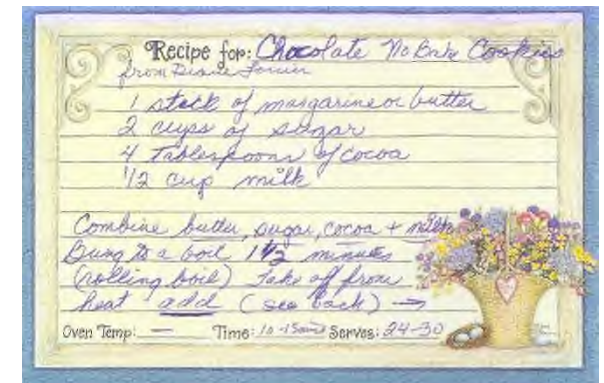 Recipe for: Chocolate No Bake Cookies
from Diane
1 stick of margarine or butter
2 cups of sugar
4 Tablespoons of cocoa
1/2 cup milk
Combine butter, sugar, cocoa + milk
Bring to a boil 1 1/2 minutes
(rolling boil) Take off from
heat add (see back) →
Oven Temp: — Time: 10-15 min Serves: 24-30